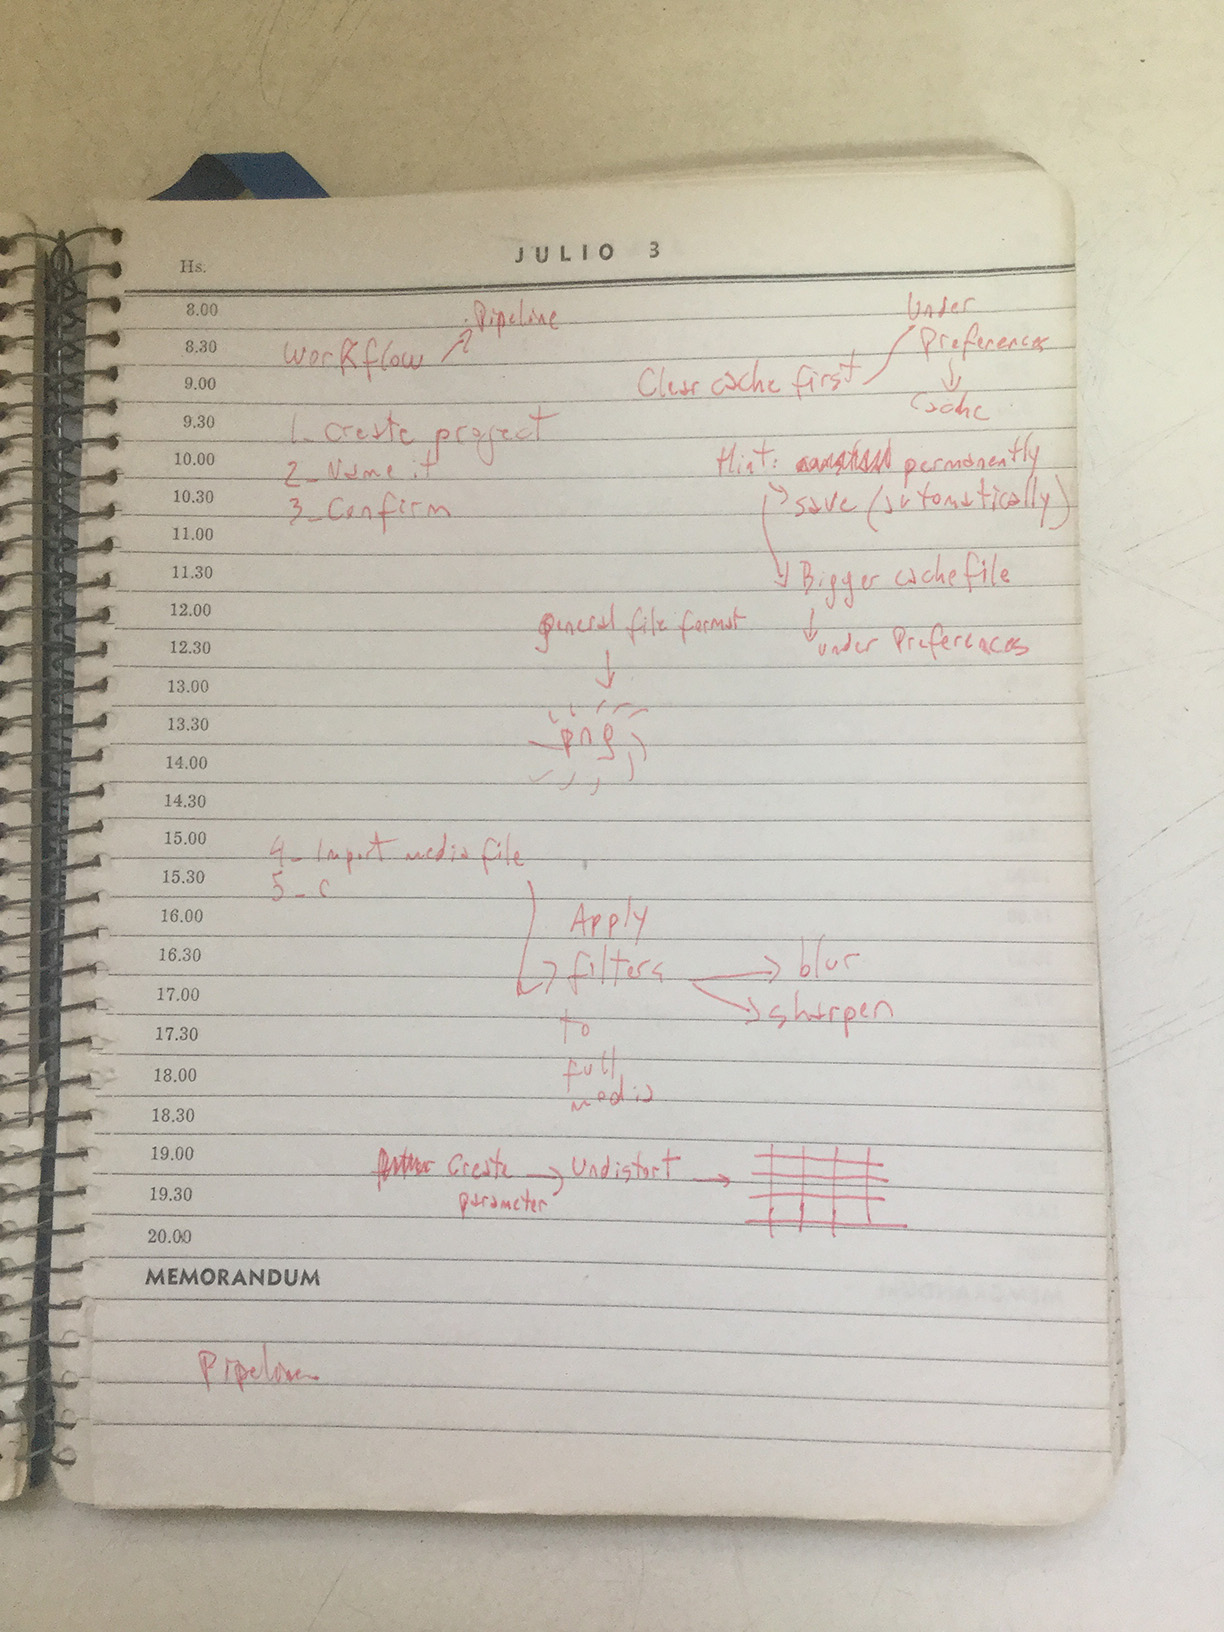 JULIO 3
Hs.
8.00
8.30
9.00
9.30
10.00
10.30
11.00
11.30
12.00
12.30
13.00
13.30
14.00
14.30
15.00
15.30
16.00
16.30
17.00
17.30
18.00
18.30
19.00
19.30
20.00
Pipeline
Workflow
Under
Preferences
Cache
Clear cache first
1_ Create project
2_ Name it
3_ Confirm
Hint: permanently
save (automatically)
Bigger cache file
under Preferences
general file format
png
4_ Import media file
5_ C
Apply
filters
to
full
media
blur
sharpen
Create
parameter
Undistort
MEMORANDUM
Pipeline